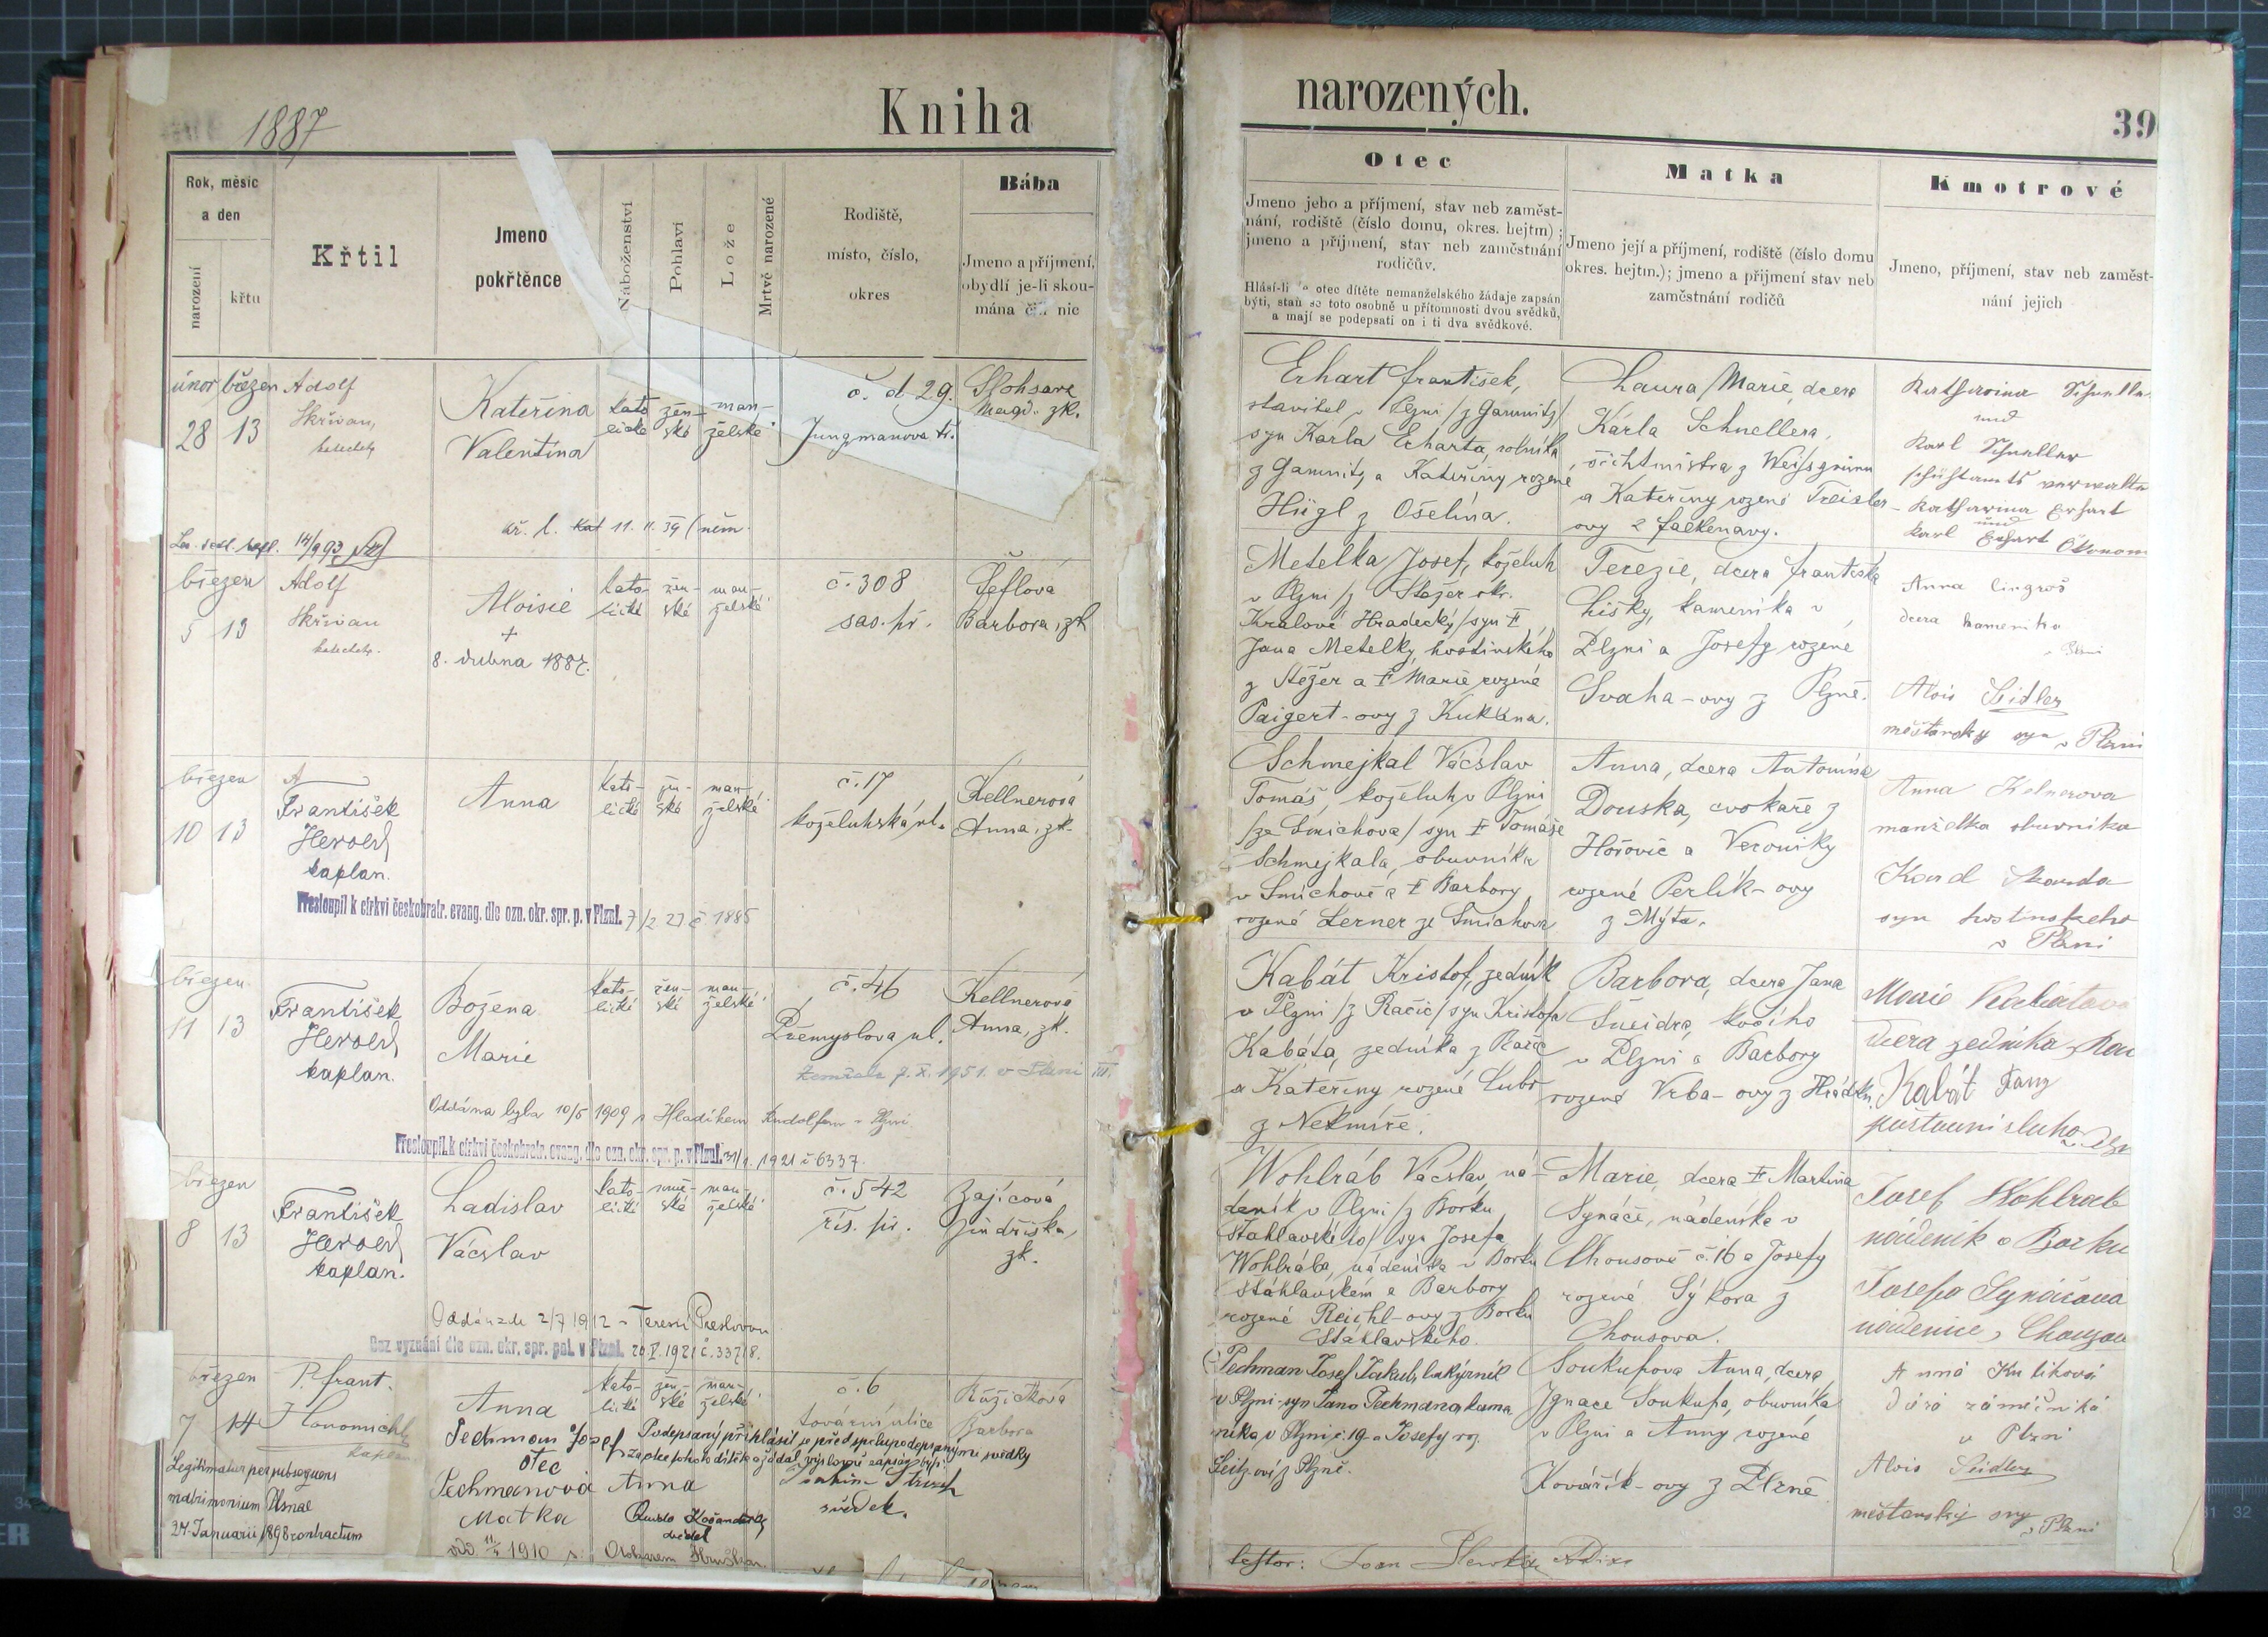 1887
Kniha
narozených.
39
Rok, měsíc
a den
narození
křtu
Křtil
Jmeno
pokřtěnce
Náboženství
Pohlaví
Lože
Mrtvě narozené
Rodiště,
místo, číslo,
okres
Bába
Jmeno a příjmení,
obydlí je-li skou-
mána čili nic
Otec
Jmeno jeho a příjmení, stav neb zaměst-
nání, rodiště (číslo domu, okres. hejtm) ;
jmeno a příjmení, stav neb zaměstnání
rodičův.
Hlásí-li se otec dítěte nemanželského žádaje zapsán
býti, staň se toto osobně u přítomnosti dvou svědků,
a mají se podepsati on i ti dva svědkové.
Matka
Jmeno její a příjmení, rodiště (číslo domu
okres. hejtm.); jmeno a příjmení stav neb
zaměstnání rodičů
Kmotrové
Jmeno, příjmení, stav neb zaměst-
nání jejich
únor březen
28 13
Adolf
Skřivan,
katecheta
Kateřina
Valentina
kato-
lické
žen-
ské
man-
želské
č. d. 29.
Jungmanova tř.
Magd. zk.
kř. l. 11. 11. 39 (něm.
14/9 93
Erhart František,
stavitel v Plzni /z Gamnitz/
syn Karla Erharta, rolníka
z Gamnitz a Kateřiny rozené
Hügl z Ošelína.
Laura Marie, dcera
Karla Schnellera,
šichtmistra z Weissgrünu
a Kateřiny rozené Treisler-
ovy z Falkenavy.
Katharina Schneller
und
Karl Schneller
Katharina Erhart
und
Karl Erhart Ökonom
březen
5 13
Adolf
Skřivan
katecheta.
Aloisie
+
8. dubna 1887.
kato-
lické
žen-
ské
man-
želské
č. 308
sas. př.
Šeflová
Barbora, zk
Metelka Josef, koželuh
v Plzni /z Stěžer okr.
Králové Hradecký/ syn †
Jana Metelky, hostinského
z Stěžer a † Marie rozené
Paigert-ovy z Kuklena.
Terezie, dcera Františka
Lišky, kameníka v
Plzni a Josefy rozené
Svaha-ovy z Plzně.
Anna
dcera kameníka
Plzni
Alois Seidler
měšťanský syn v Plzni
březen
10 13
František
Herold
kaplan.
Anna
kato-
lické
žen-
ské
man-
želské
č. 17
koželuhská ul.
Kellnerová
Anna, zk.
Přestoupil k církvi českobratr. evang. dle ozn. okr. spr. p. v Plzni. 7/2 21 č. 1885
Schmejkal Václslav
Tomáš koželuh v Plzni
/ze Smíchova/ syn † Tomáše
Schmejkala, obuvníka
v Smíchově a † Barbory
rozené Lerner ze Smíchova
Anna, dcera Antonína
Douska, cvokaře z
Hořovic a Veroniky
rozené Perlík-ovy
z Mýta.
Anna Kelnerova
manželka obuvníka
syn hostinského
v Plzni
březen
11 13
František
Herold
kaplan.
Božena
Marie
kato-
lické
žen-
ské
man-
želské
č. 46
Přemyslova ul.
Kellnerová
Anna, zk.
Zemřela 7. X. 1951. v Plzni III.
Oddána byla 10/5 1909 s Hladíkem Rudolfem v Plzni
Přestoupil k církvi českobratr. evang. dle ozn. okr. spr. p. v Plzni. 31/1. 1921 č 6337.
Kabát Kristof, zedník
v Plzni /z Račic/ syn Kristofa
Kabáta, zedníka z Račic
a Kateřiny rozené Lubr
z Nekmíře.
Barbora, dcera Jana
Šneidra, kočího
v Plzni a Barbory
rozené Vrba-ovy z Hrádku.
Marie Kabátová
dcera zedníka
Kabát
poštovní sluha
březen
8 13
František
Herold
kaplan.
Ladislav
Václslav
kato-
lické
muž-
ské
man-
želské
č. 542
říš. př.
Zajícová
Jindřiška,
zk.
Oddán zde 2/7 1912 s Terezií Preslovou
Bez vyznání dle ozn. okr. spr. pol. v Plzni. 20 V. 1921 č. 33718.
Wohlráb Václslav, ná-
deník v Plzni /z Borku
Šťáhlavského/ syn Josefa
Wohlrába, nádeníka v Borku
Šťáhlavském a Barbory
rozené Reichl-ovy z Borku
Šťáhlavského.
Marie, dcera † Martina
Synáče, nádeníka v
Chousově č. 16 a Josefy
rozené Sýkora z
Chousova.
Josef Wohlrab
nádeník v Borku
Josefa Synáčova
nádenice z
březen
7 14
P. Frant.
kaplan
Anna
kato-
lické
žen-
ské
man-
želské
č. 6
tovární ulice
Růžičková
Barbora
Pechman Josef
otec
Podepsaný přihlásil se před spolupodepsanými svědky
za otce tohoto dítěte a žádal výslovně zapsán býti.
Legitimatur per subsequens
matrimonium Plsnae
24. Januarii 1898 contractum
Pechmanová Anna
Matka
svědek
svědek.
odd. 11/4 1910 s. Otokarem
Pechman Josef Jakub, lakýrník
v Plzni, syn Jana Pechmana, kame-
níka v Plzni č. 19 a Josefy roz.
Seitzové z Plzně.
Soukupova Anna, dcera
Ignace Soukupa, obuvníka
v Plzni a Anny rozené
Kovářík-ovy z Plzně.
Anna Kulíková
v Plzni
Alois Seidler
měšťanský syn v Plzni